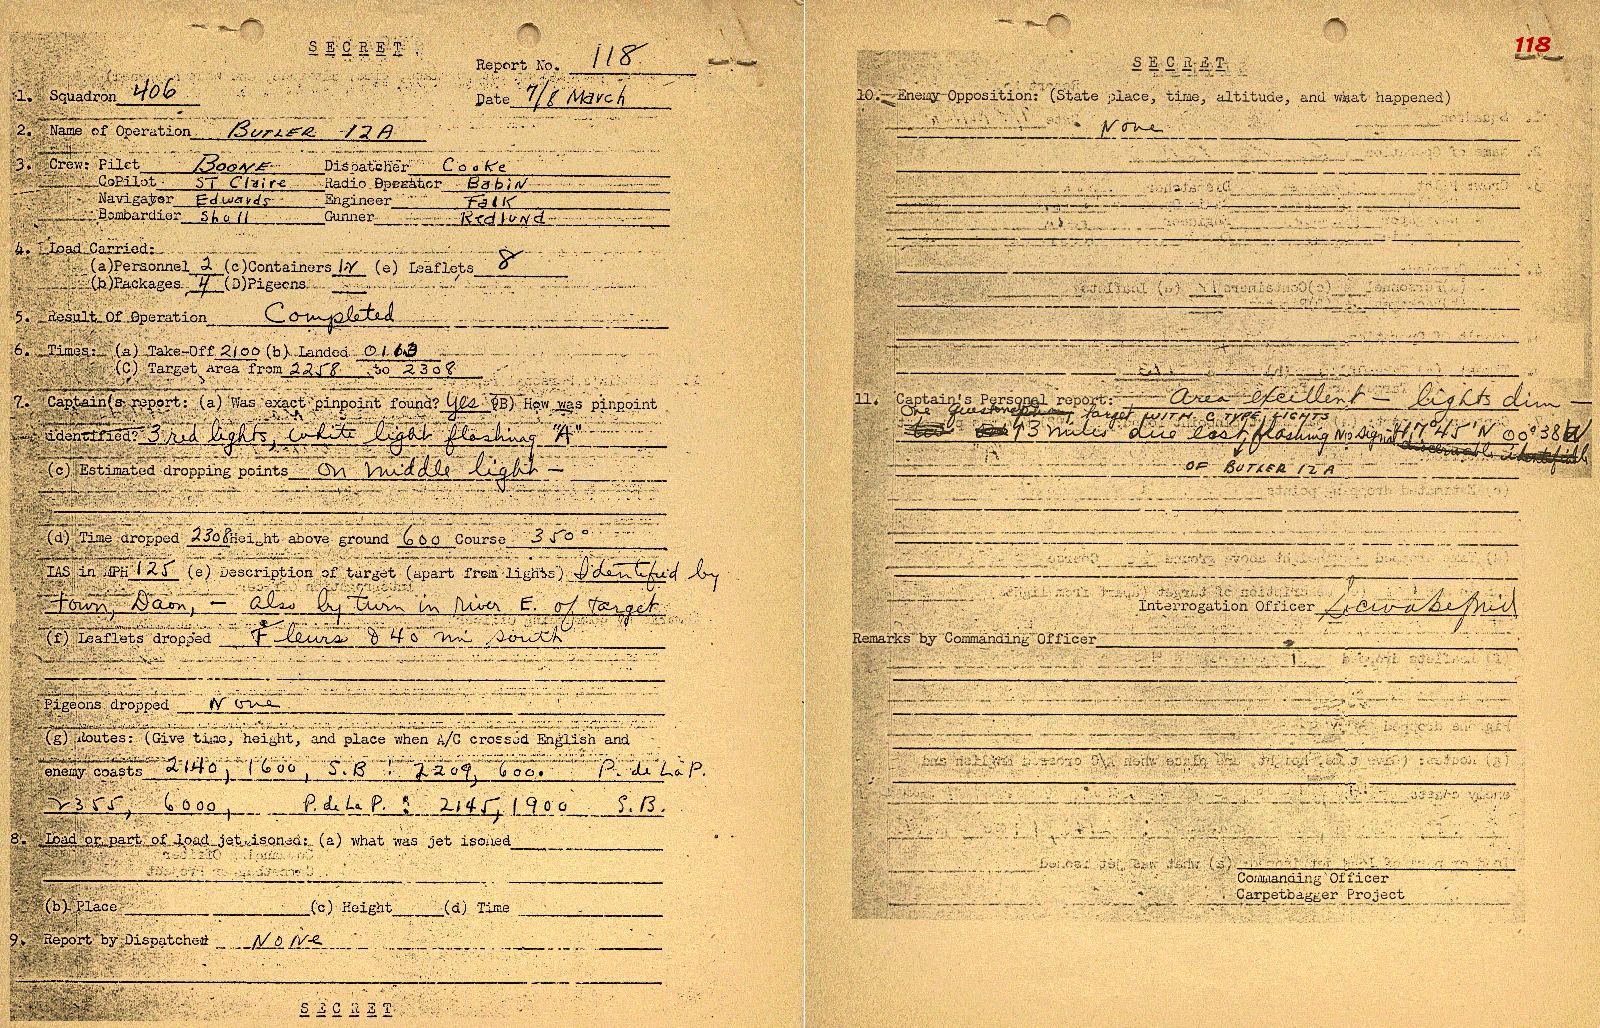 SECRET
Report No. 118
1. Squadron 406
Date 7/8 March
2. Name of Operation BUTLER 12A
3. Crew: Pilot BOONE Dispatcher Cooke
CoPilot ST Claire Radio Operator Babin
Navigator Edwards Engineer Falk
Bombardier Sholl Gunner Redlund
4. Load Carried:
(a)Personnel 2 (c)Containers 12 (e) Leaflets 8
(b)Packages 4 (D)Pigeons
5. Result Of Operation Completed
6. Times: (a) Take-Off 2100 (b) Landed
(C) Target Area from 2258 to 2308
7. Captain's report: (a) Was exact pinpoint found? Yes (B) How was pinpoint
identified? 3 red lights, white light flashing "A"
(c) Estimated dropping points on middle light —
(d) Time dropped 2308 Height above ground 600 Course 350°
IAS in MPH 125 (e) Description of target (apart from lights) Identified by
town, Daon, — also by turn in river E. of target
(f) Leaflets dropped Fleurs & 40 mi south
Pigeons dropped None
(g) Routes: (Give time, height, and place when A/C crossed English and
enemy coasts 2140, 1600, S.B : 2209, 600. P. de La P.
2355, 6000, P. de La P. : 2145, 1900 S.B.
8. Load or part of load jet isoned: (a) what was jet isoned
(b) Place (c) Height (d) Time
9. Report by Dispatcher NONE
SECRET
118
SECRET
10. Enemy Opposition: (State place, time, altitude, and what happened)
None
11. Captain's Personal report: Area excellent — lights dim —
One target WITH C TYPE LIGHTS
13 miles due east flashing No signal 47°45'N 00°38'W
OF BUTLER 12A
Interrogation Officer
Remarks by Commanding Officer
Commanding Officer
Carpetbagger Project